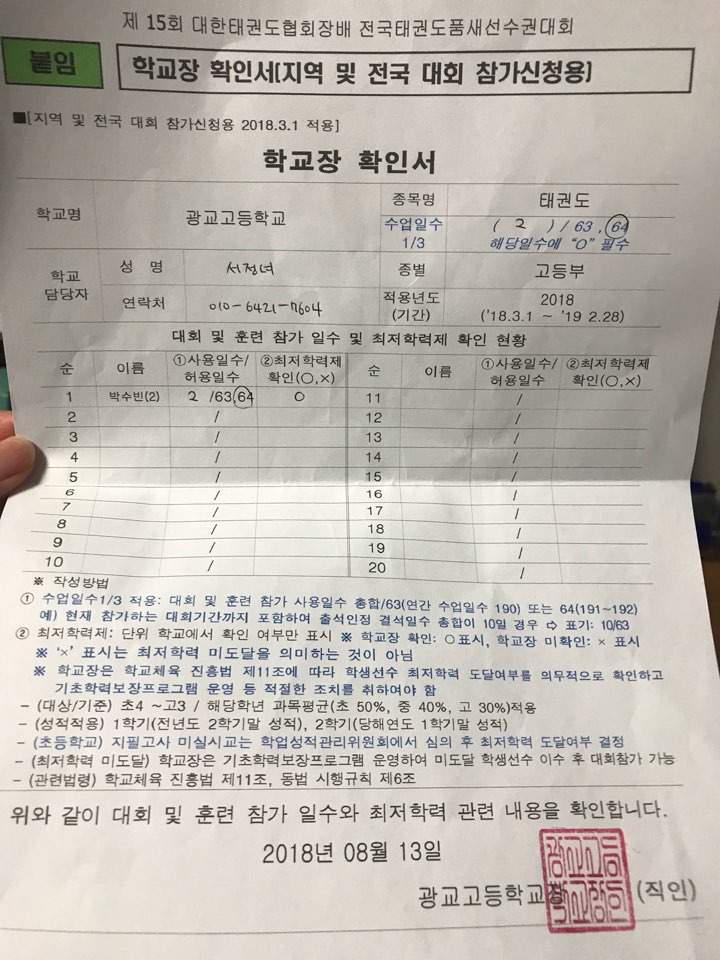 제 15회 대한태권도협회장배 전국태권도품새선수권대회
붙임
학교장 확인서(지역 및 전국 대회 참가신청용)
■[지역 및 전국 대회 참가신청용 2018.3.1 적용]
학교장 확인서
학교명 광교고등학교 종목명 태권도
수업일수 1/3 ( 2 ) / 63 , 64
해당일수에 "O" 필수
학교 담당자 성 명 서정녀 종별 고등부
연락처 010-6421-7604 적용년도 (기간) 2018 ('18.3.1 ~ '19 2.28)
대회 및 훈련 참가 일수 및 최저학력제 확인 현황
순 이름 ①사용일수/허용일수 ②최저학력제 확인(○,×) 순 이름 ①사용일수/허용일수 ②최저학력제 확인(○,×)
1 박수빈(2) 2 /63,64 ○ 11 /
2 / 12 /
3 / 13 /
4 / 14 /
5 / 15 /
6 / 16 /
7 / 17 /
8 / 18 /
9 / 19 /
10 / 20 /
※ 작성방법
① 수업일수1/3 적용: 대회 및 훈련 참가 사용일수 총합/63(연간 수업일수 190) 또는 64(191~192)
예) 현재 참가하는 대회기간까지 포함하여 출석인정 결석일수 총합이 10일 경우 ⇨ 표기: 10/63
② 최저학력제: 단위 학교에서 확인 여부만 표시 ※ 학교장 확인: ○표시, 학교장 미확인: × 표시
※ '×' 표시는 최저학력 미도달을 의미하는 것이 아님
※ 학교장은 학교체육 진흥법 제11조에 따라 학생선수 최저학력 도달여부를 의무적으로 확인하고
기초학력보장프로그램 운영 등 적절한 조치를 취하여야 함
- (대상/기준) 초4 ~고3 / 해당학년 과목평균(초 50%, 중 40%, 고 30%)적용
- (성적적용) 1학기(전년도 2학기말 성적), 2학기(당해연도 1학기말 성적)
- (초등학교) 지필고사 미실시교는 학업성적관리위원회에서 심의 후 최저학력 도달여부 결정
- (최저학력 미도달) 학교장은 기초학력보장프로그램 운영하여 미도달 학생선수 이수 후 대회참가 가능
- (관련법령) 학교체육 진흥법 제11조, 동법 시행규칙 제6조
위와 같이 대회 및 훈련 참가 일수와 최저학력 관련 내용을 확인합니다.
2018년 08월 13일
광교고등학교장 (직인)